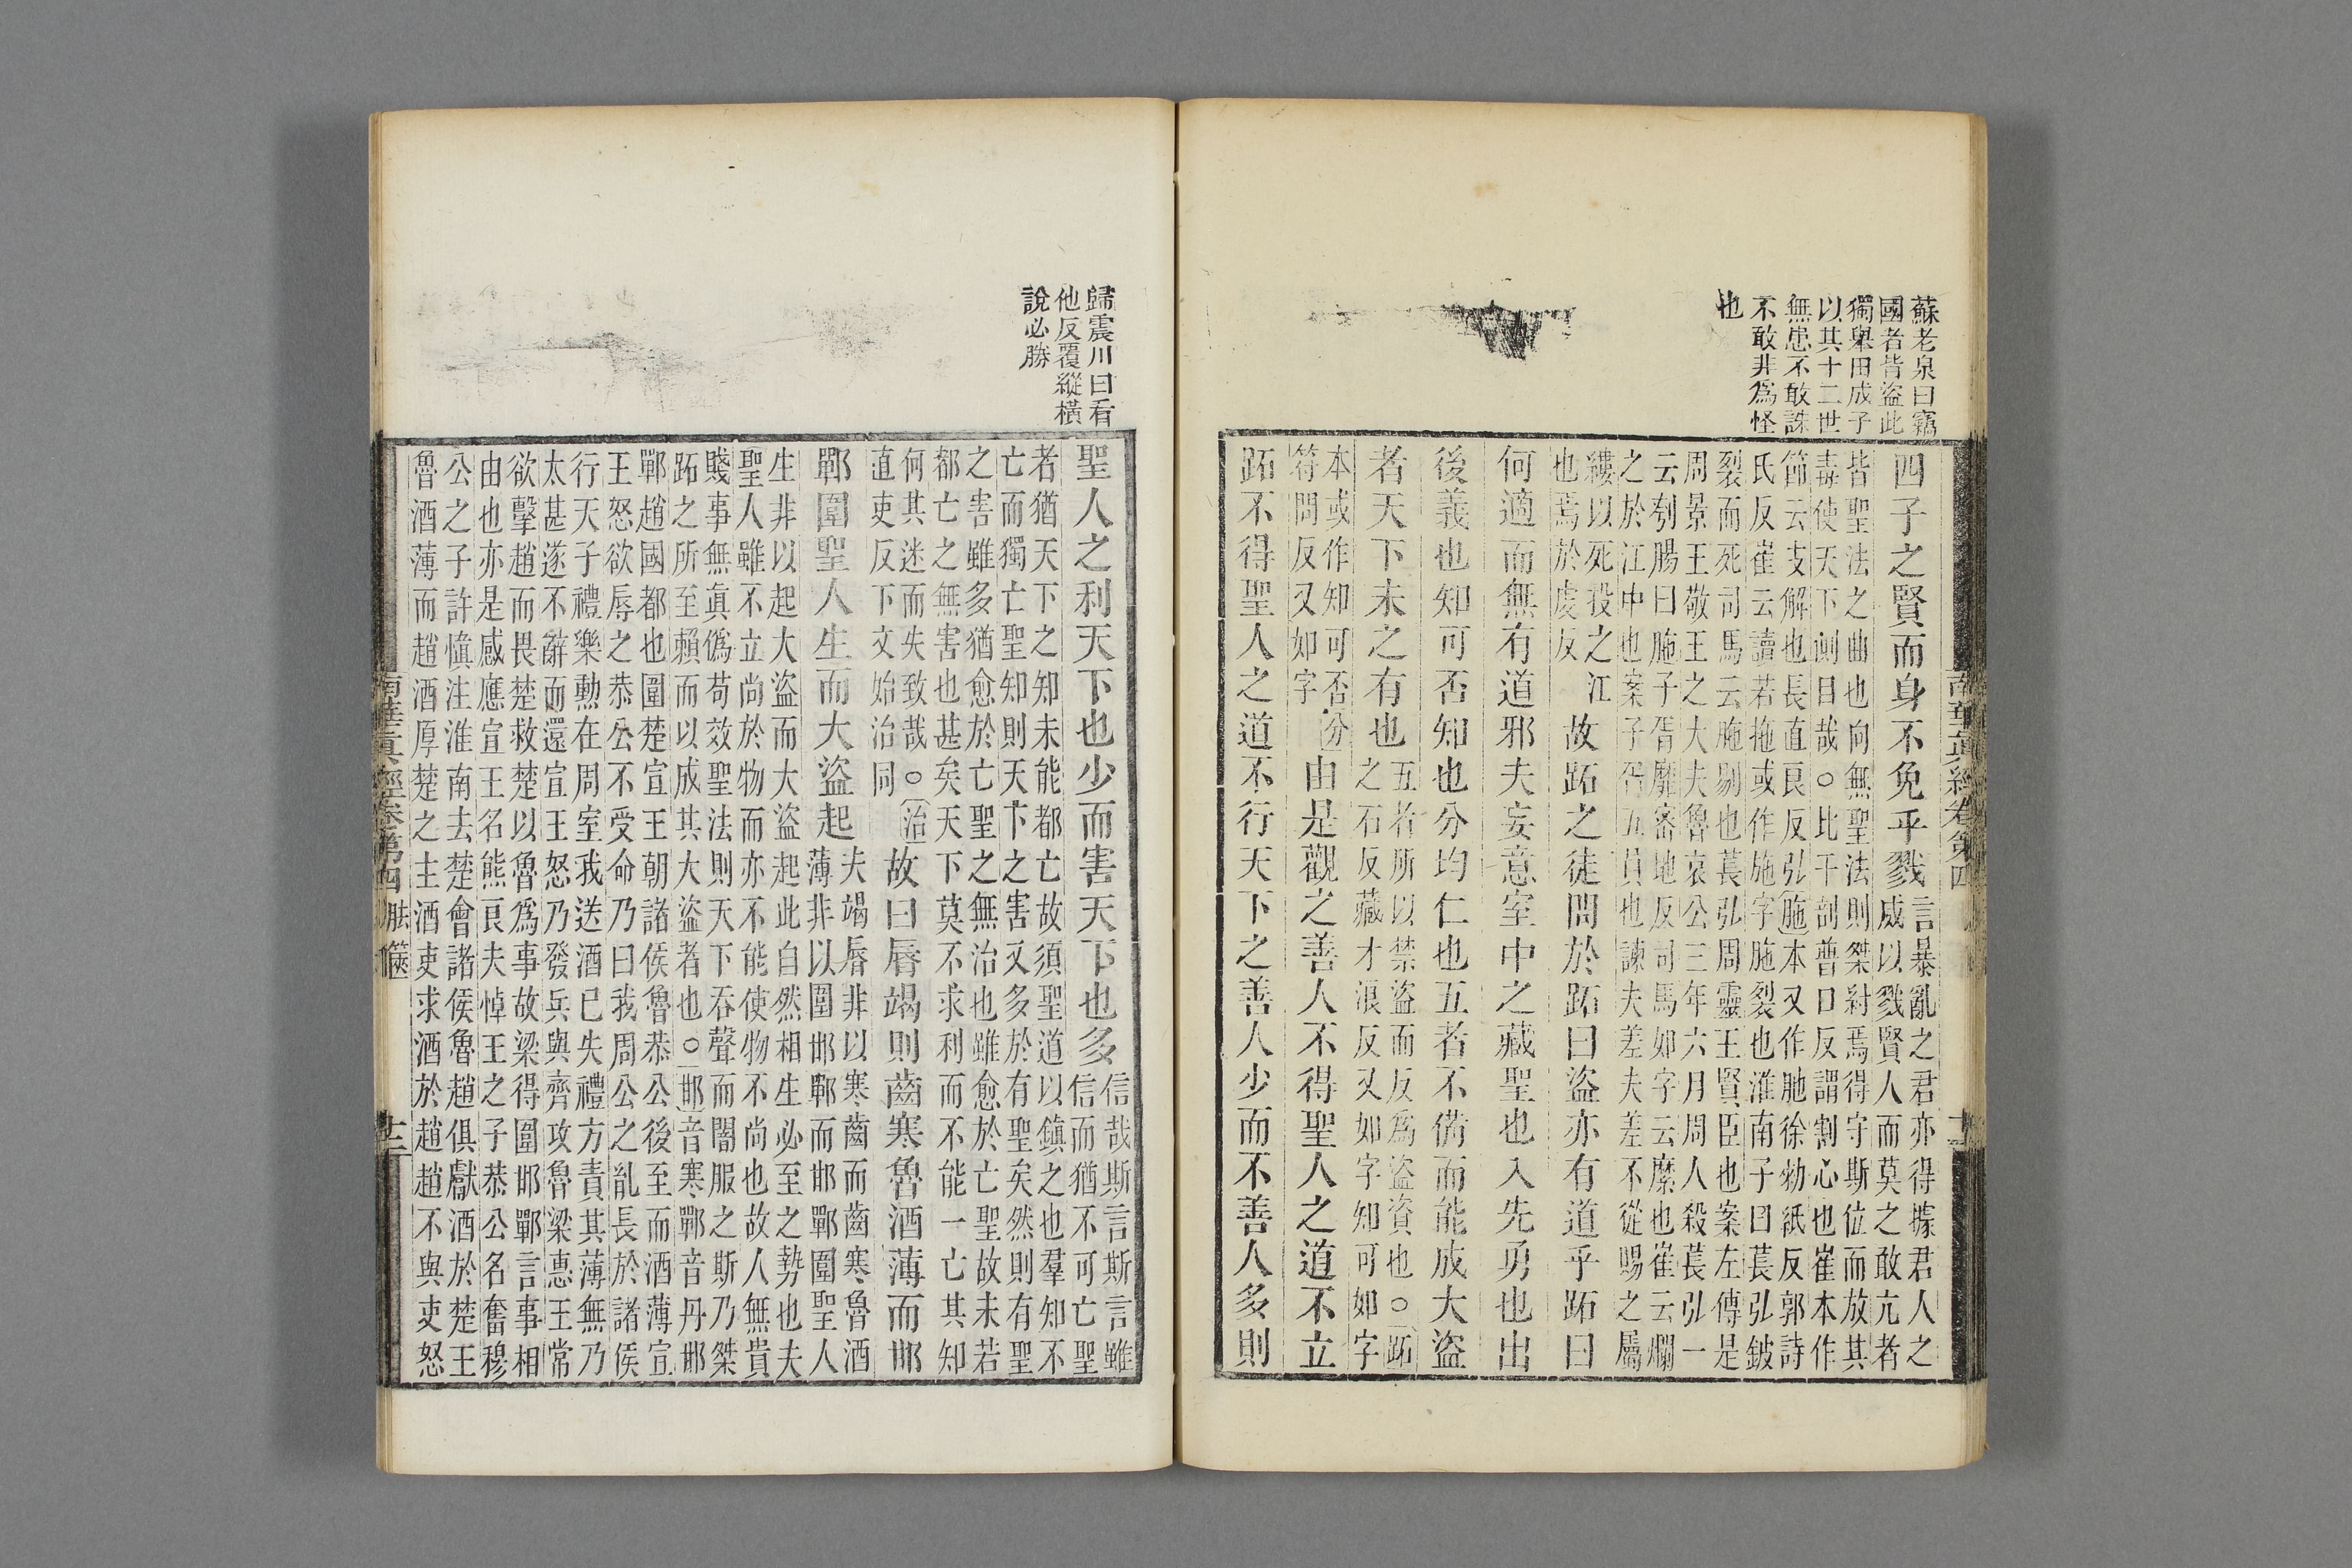 蘇老泉曰竊
國者皆盜此
獨舉田成子
以其十二世
無患不敢誅
不敢非爲怪
也
四子之賢而身不免乎戮
言暴亂之君亦得據君人之
威以戮賢人而莫之敢亢者
皆聖法之曲也向無聖法則桀紂焉得守斯位而放其
毒使天下側目哉○比干剖普口反謂割心也崔本作
節云支解也長直良反弘胣本又作肔徐勑紙反郭詩
氏反崔云讀若拖或作施字胣裂也淮南子曰萇弘鈹
裂而死司馬云胣剔也萇弘周靈王賢臣也案左傳是
周景王敬王之大夫魯哀公三年六月周人殺萇弘一
云刳腸曰胣子胥靡密地反司馬如字云縻也崔云爛
之於江中也案子胥伍員也諫夫差夫差不從賜之屬
縷以死投之江
也焉於虔反
故跖之徒問於跖曰盜亦有道乎跖曰
何適而無有道邪夫妄意室中之藏聖也入先勇也出
後義也知可否知也分均仁也五者不備而能成大盜
者天下未之有也
五者所以禁盜而反爲盜資也○跖
之石反藏才浪反又如字知可如字
本或作知可否分
符問反又如字
由是觀之善人不得聖人之道不立
跖不得聖人之道不行天下之善人少而不善人多則
南華眞經卷第四
歸震川曰看
他反覆縱橫
說必勝
聖人之利天下也少而害天下也多
信哉斯言斯言雖
信而猶不可亡聖
者猶天下之知未能都亡故須聖道以鎮之也羣知不
亡而獨亡聖知則天下之害又多於有聖矣然則有聖
之害雖多猶愈於亡聖之無治也雖愈於亡聖故未若
都亡之無害也甚矣天下莫不求利而不能一亡其知
何其迷而失致哉○治
直吏反下文始治同
故曰脣竭則齒寒魯酒薄而邯
鄲圍聖人生而大盜起
夫竭脣非以寒齒而齒寒魯酒
薄非以圍邯鄲而邯鄲圍聖人
生非以起大盜而大盜起此自然相生必至之勢也夫
聖人雖不立尚於物而亦不能使物不尚也故人無貴
賤事無眞僞苟效聖法則天下吞聲而闇服之斯乃桀
跖之所至賴而以成其大盜者也○邯音寒鄲音丹邯
鄲趙國都也圍楚宣王朝諸侯魯恭公後至而酒薄宣
王怒欲辱之恭公不受命乃曰我周公之亂長於諸侯
行天子禮樂勳在周室我送酒已失禮方責其薄無乃
太甚遂不辭而還宣王怒乃發兵與齊攻魯梁惠王常
欲擊趙而畏楚救楚以魯爲事故梁得圍邯鄲言事相
由也亦是感應宣王名熊良夫悼王之子恭公名奮穆
公之子許愼注淮南去楚會諸侯魯趙俱獻酒於楚王
魯酒薄而趙酒厚楚之主酒吏求酒於趙趙不與吏怒
南華眞經卷第四 胠篋 十二